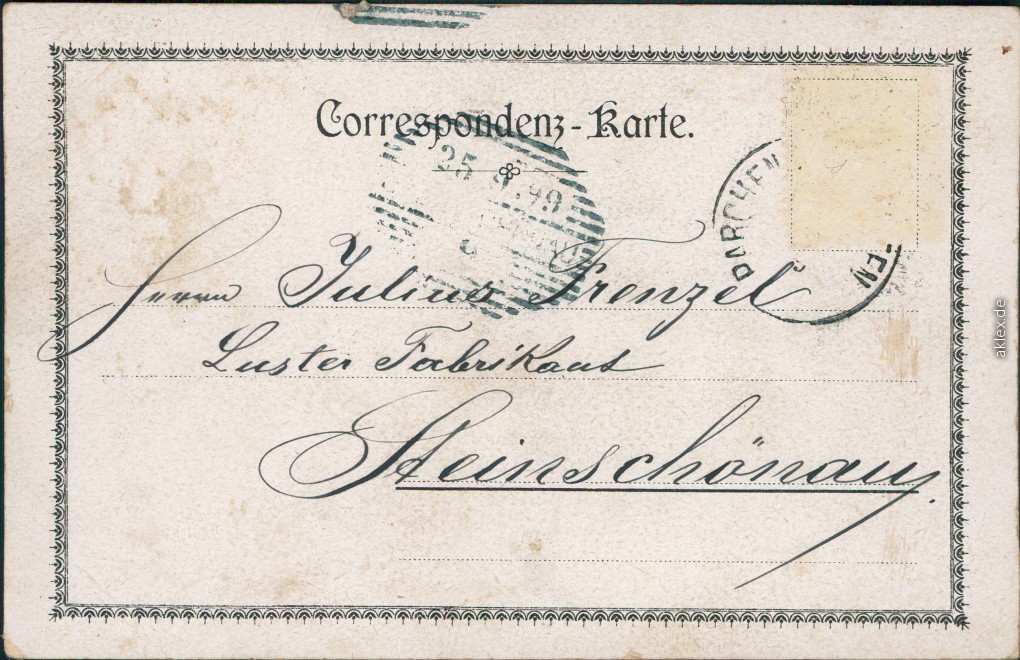 Correspondenz-Karte.
25 9.99
PARCHEN
EN
Herrn Julius Frenzel
Luster Fabrikant
Steinschönau.
aklex.de